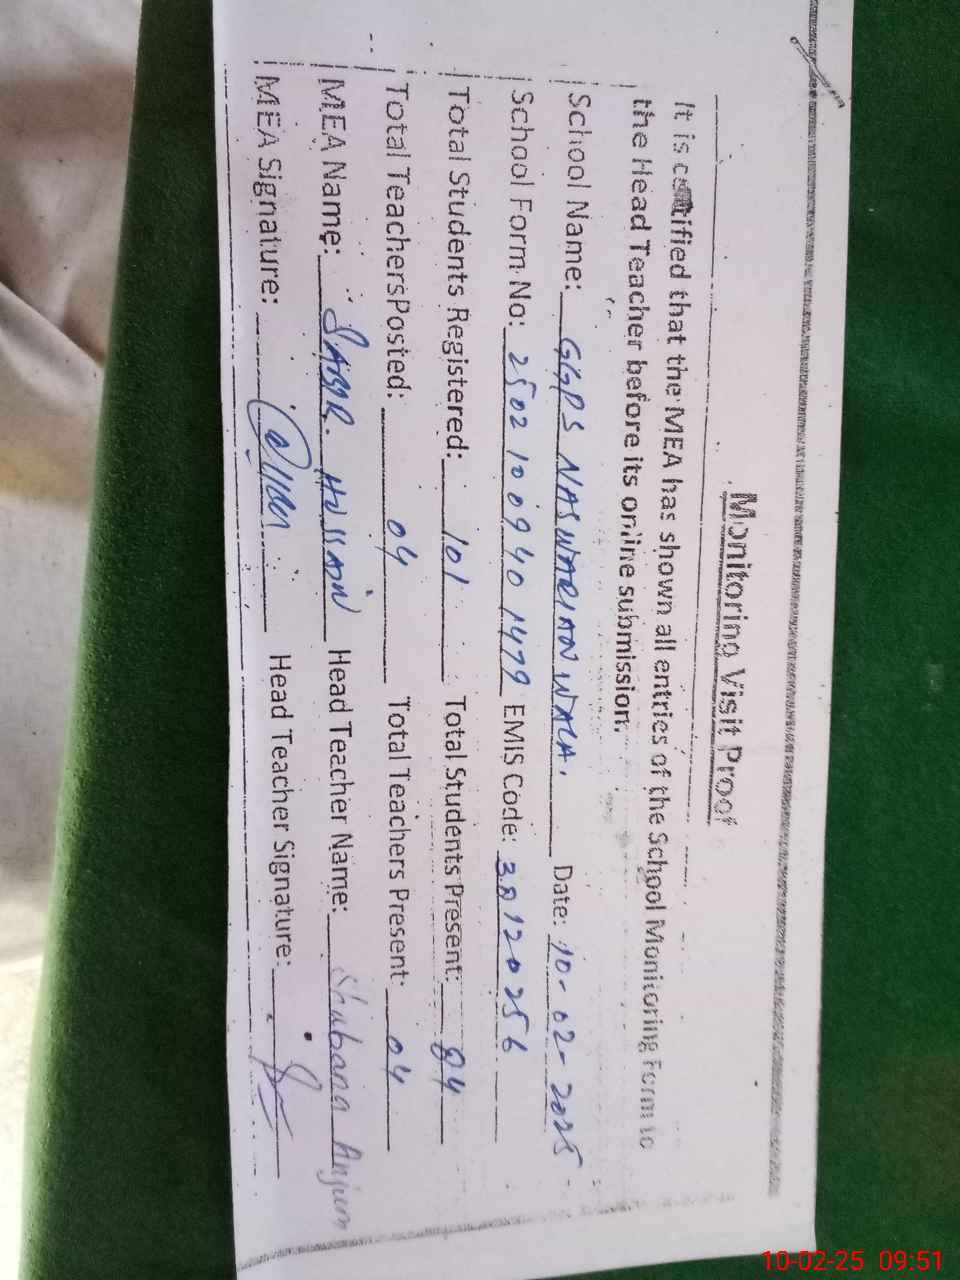 Monitoring Visit Proof
It is certified that the MEA has shown all entries of the School Monitoring Form to
the Head Teacher before its online submission.
School Name: GGPS NASWARIAN WALA. Date: 10-02-2025
School Form No: 2502100940 1479 EMIS Code: 38120256
Total Students Registered: 101 Total Students Present: 84
Total Teachers Posted: 04 Total Teachers Present: 04
MEA Name: SABIR HUSSAIN Head Teacher Name: Shabana Anjum
MEA Signature: Head Teacher Signature:
10-02-25 09:51